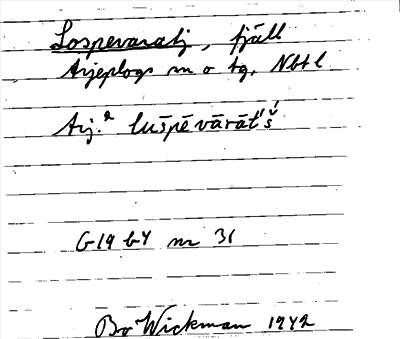 Lospevaratj, fjäll
Arjeplogs sn o tg, Nbtl
Arj.² lūšpē vārāt́š́
G19 b4 nr 31
Bo Wickman 1942